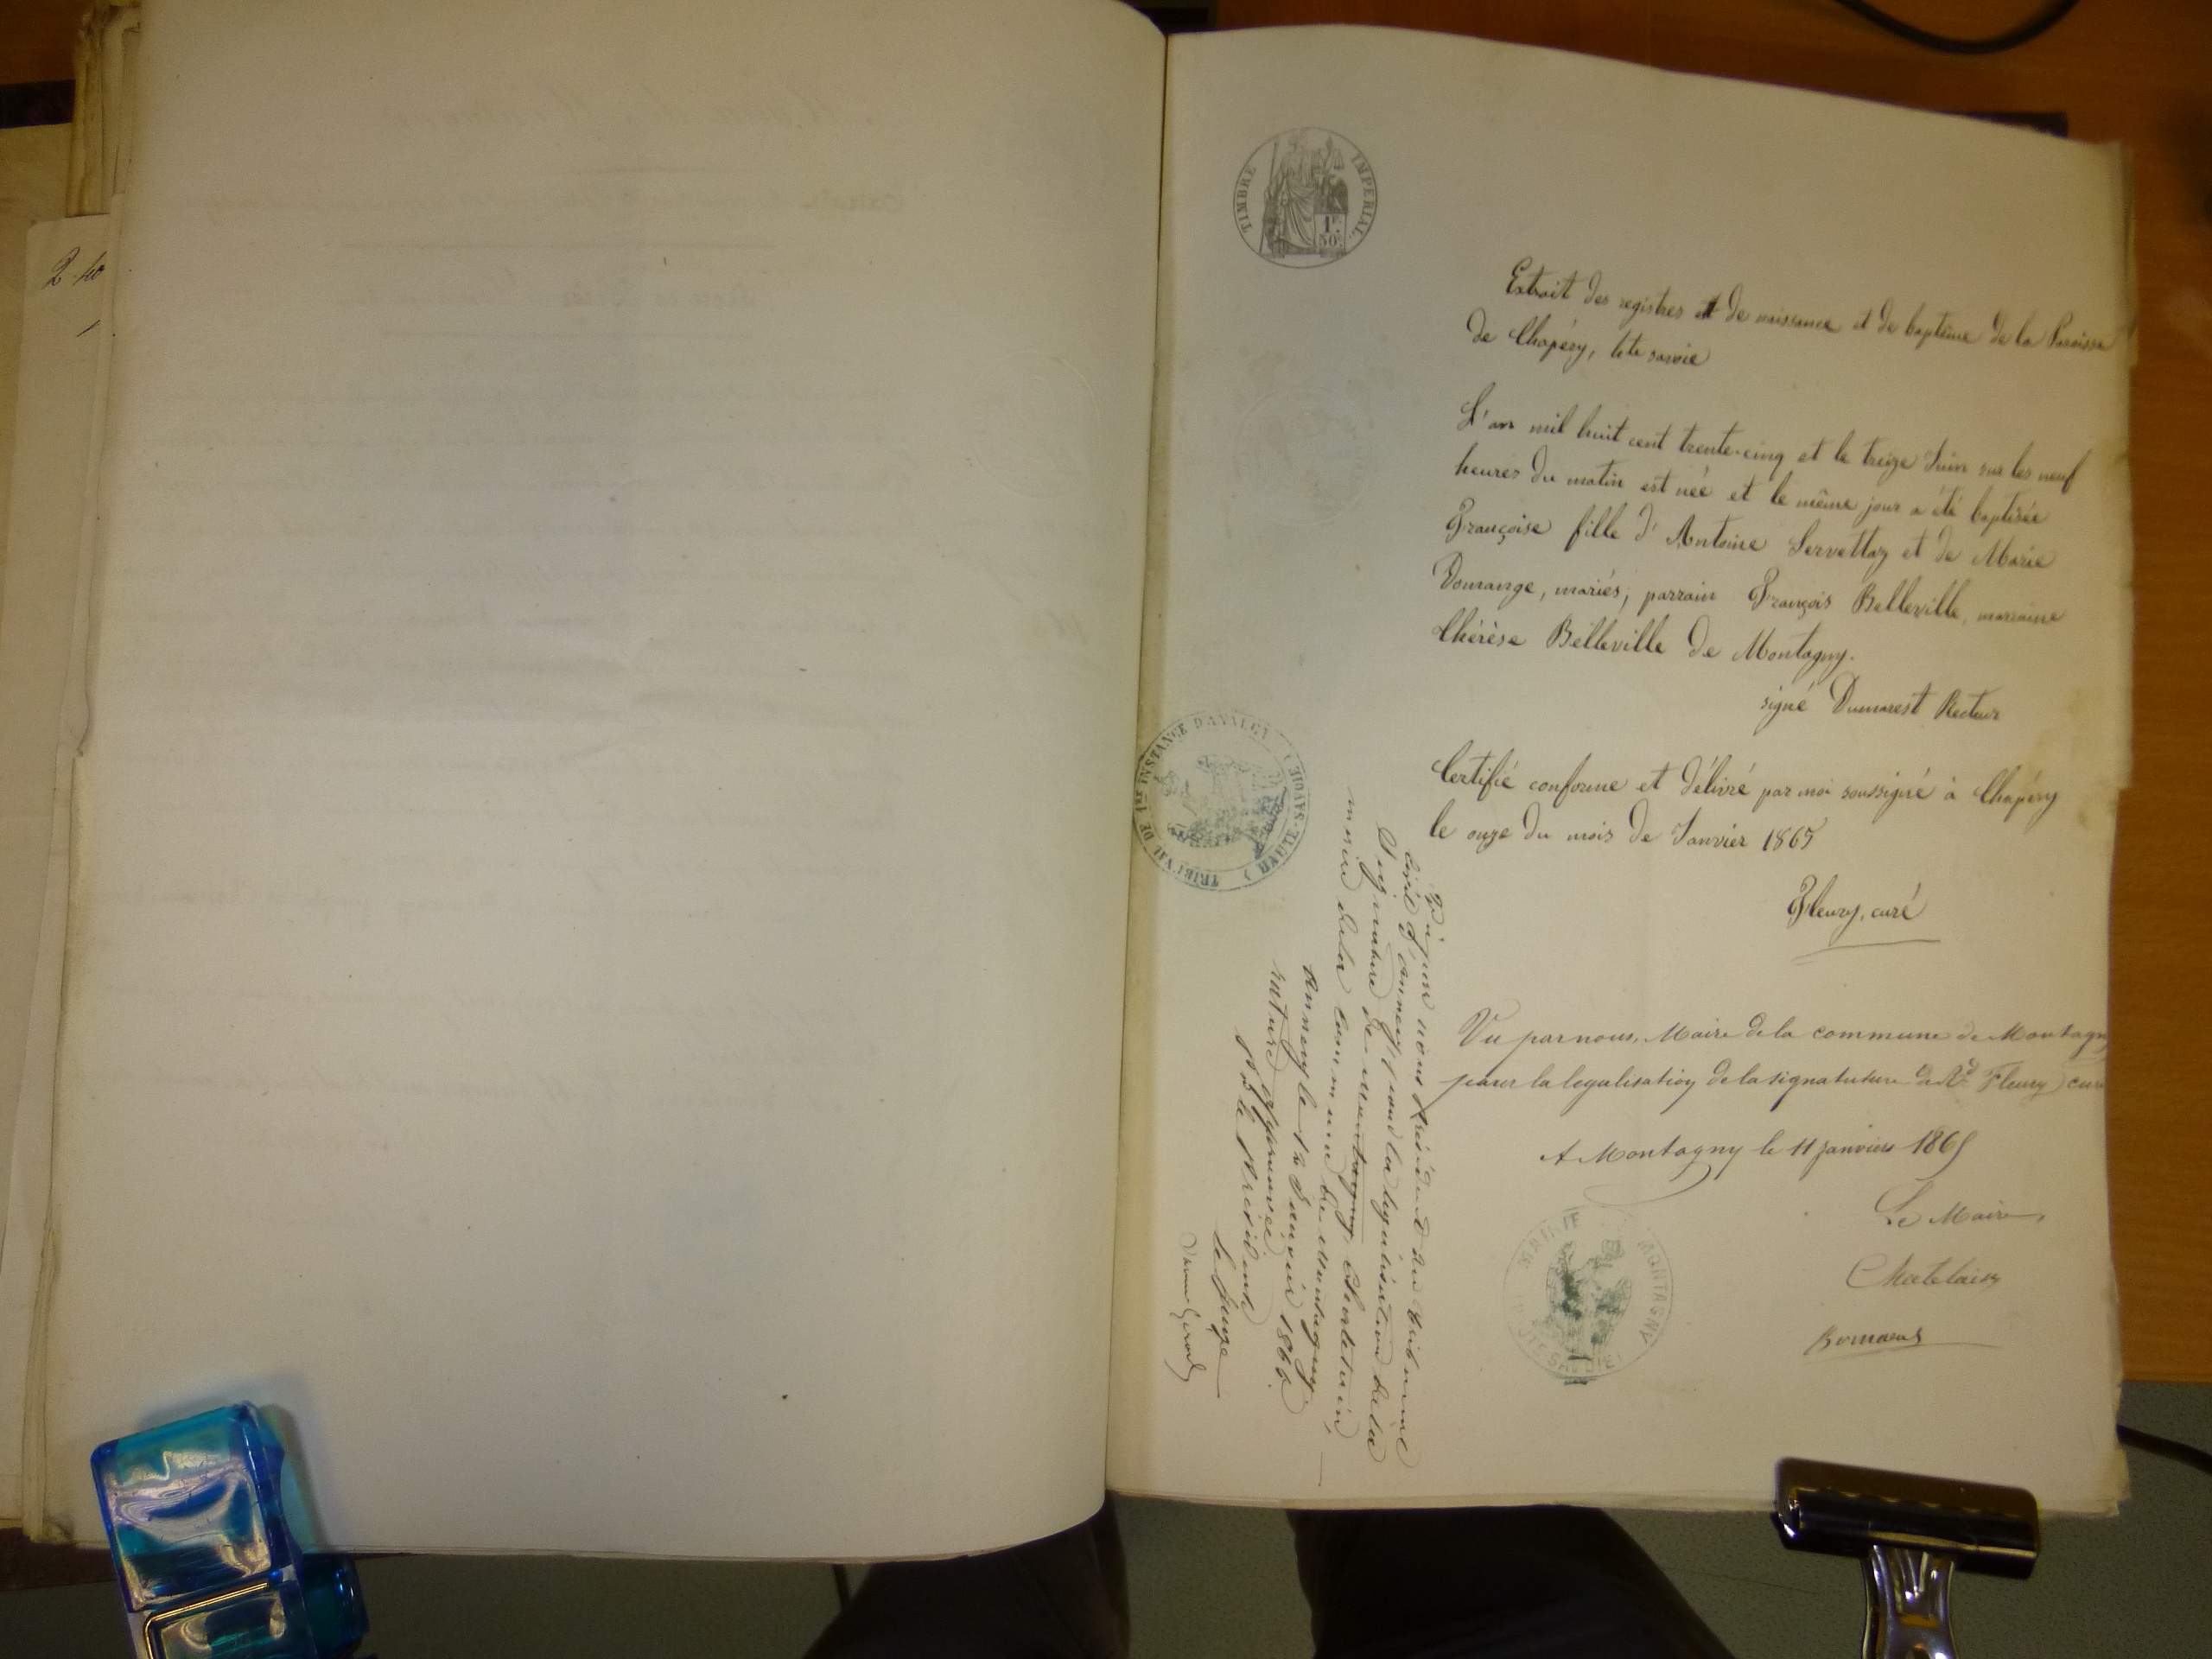 2.40
TIMBRE IMPERIAL.
1F.
50C.
Extrait des registres et de naissance et de baptême de la Paroisse
de Chapéry, hte savoie
L'an mil huit cent trente-cinq et le treize Juin sur les neuf
heures du matin est née et le même jour a été baptisée
Françoise fille d'Antoine Servettaz et de Marie
Domange, mariés; parrain François Belleville, marraine
Thérèse Belleville de Montagny.
signé Dumarest Recteur
Certifié conforme et délivré par moi soussigné à Chapéry
le onze du mois de Janvier 1865
Fleury, curé
Vu par nous, Maire de la commune de Montagny
pour la legalisation de la signatuture de Rd Fleury curé
A Montagny le 11 janvier 1865
Le Maire,
Chatelain
MAIRIE MONTAGNY
TRIBUNAL DE 1RE INSTANCE D'ANNECY (HAUTE-SAVOIE)
Vu par nous Président du tribunal
Civil d'annecy, pour la légalisation de la
Signature de montagny, Chatelain
maire de la Commune de montagny,
annecy le 12 Janvier 1865
rature approuvée
Pr le Président
le juge